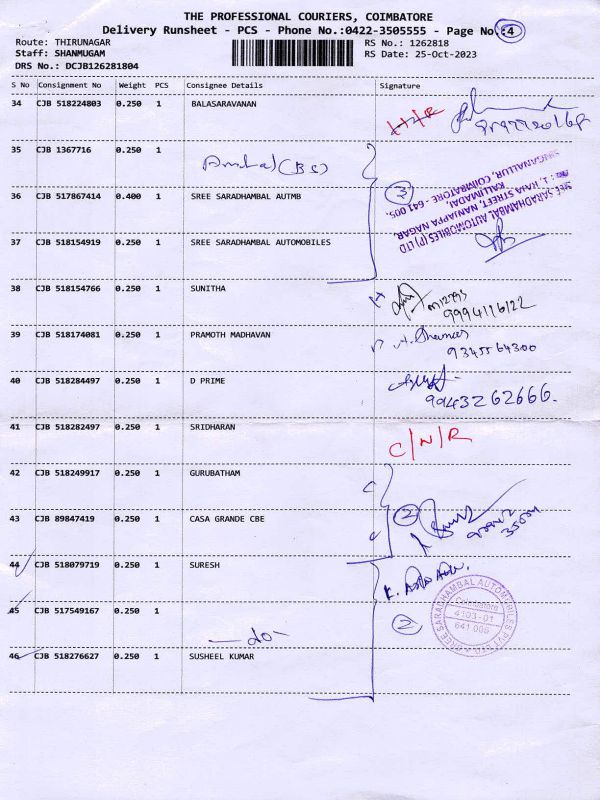 THE PROFESSIONAL COURIERS, COIMBATORE
Delivery Runsheet - PCS - Phone No.:0422-3505555 - Page No.:4
Route: THIRUNAGAR RS No.: 1262818
Staff: SHANMUGAM RS Date: 25-Oct-2023
DRS No.: DCJB126281804
S No Consignment No Weight PCS Consignee Details Signature
34 CJB 518224803 0.250 1 BALASARAVANAN
35 CJB 1367716 0.250 1
36 CJB 517867414 0.400 1 SREE SARADHAMBAL AUTMB 3
SREE SARADHAMBAL AUTOMOBILES (P) LTD
KALLIMADAI,
SINGANALLUR, COIMBATORE - 641 005.
37 CJB 518154919 0.250 1 SREE SARADHAMBAL AUTOMOBILES
38 CJB 518154766 0.250 1 SUNITHA
9994116122
39 CJB 518174081 0.250 1 PRAMOTH MADHAVAN
9345564300
40 CJB 518284497 0.250 1 D PRIME
99432 62666.
41 CJB 518282497 0.250 1 SRIDHARAN C/N/R
42 CJB 518249917 0.250 1 GURUBATHAM
43 CJB 89847419 0.250 1 CASA GRANDE CBE 2
44 CJB 518079719 0.250 1 SURESH
45 CJB 517549167 0.250 1 -do- 2
SREE SARADHAMBAL AUTOMOBILES
Coimbatore
4103-01
641 005
46 CJB 518276627 0.250 1 SUSHEEL KUMAR